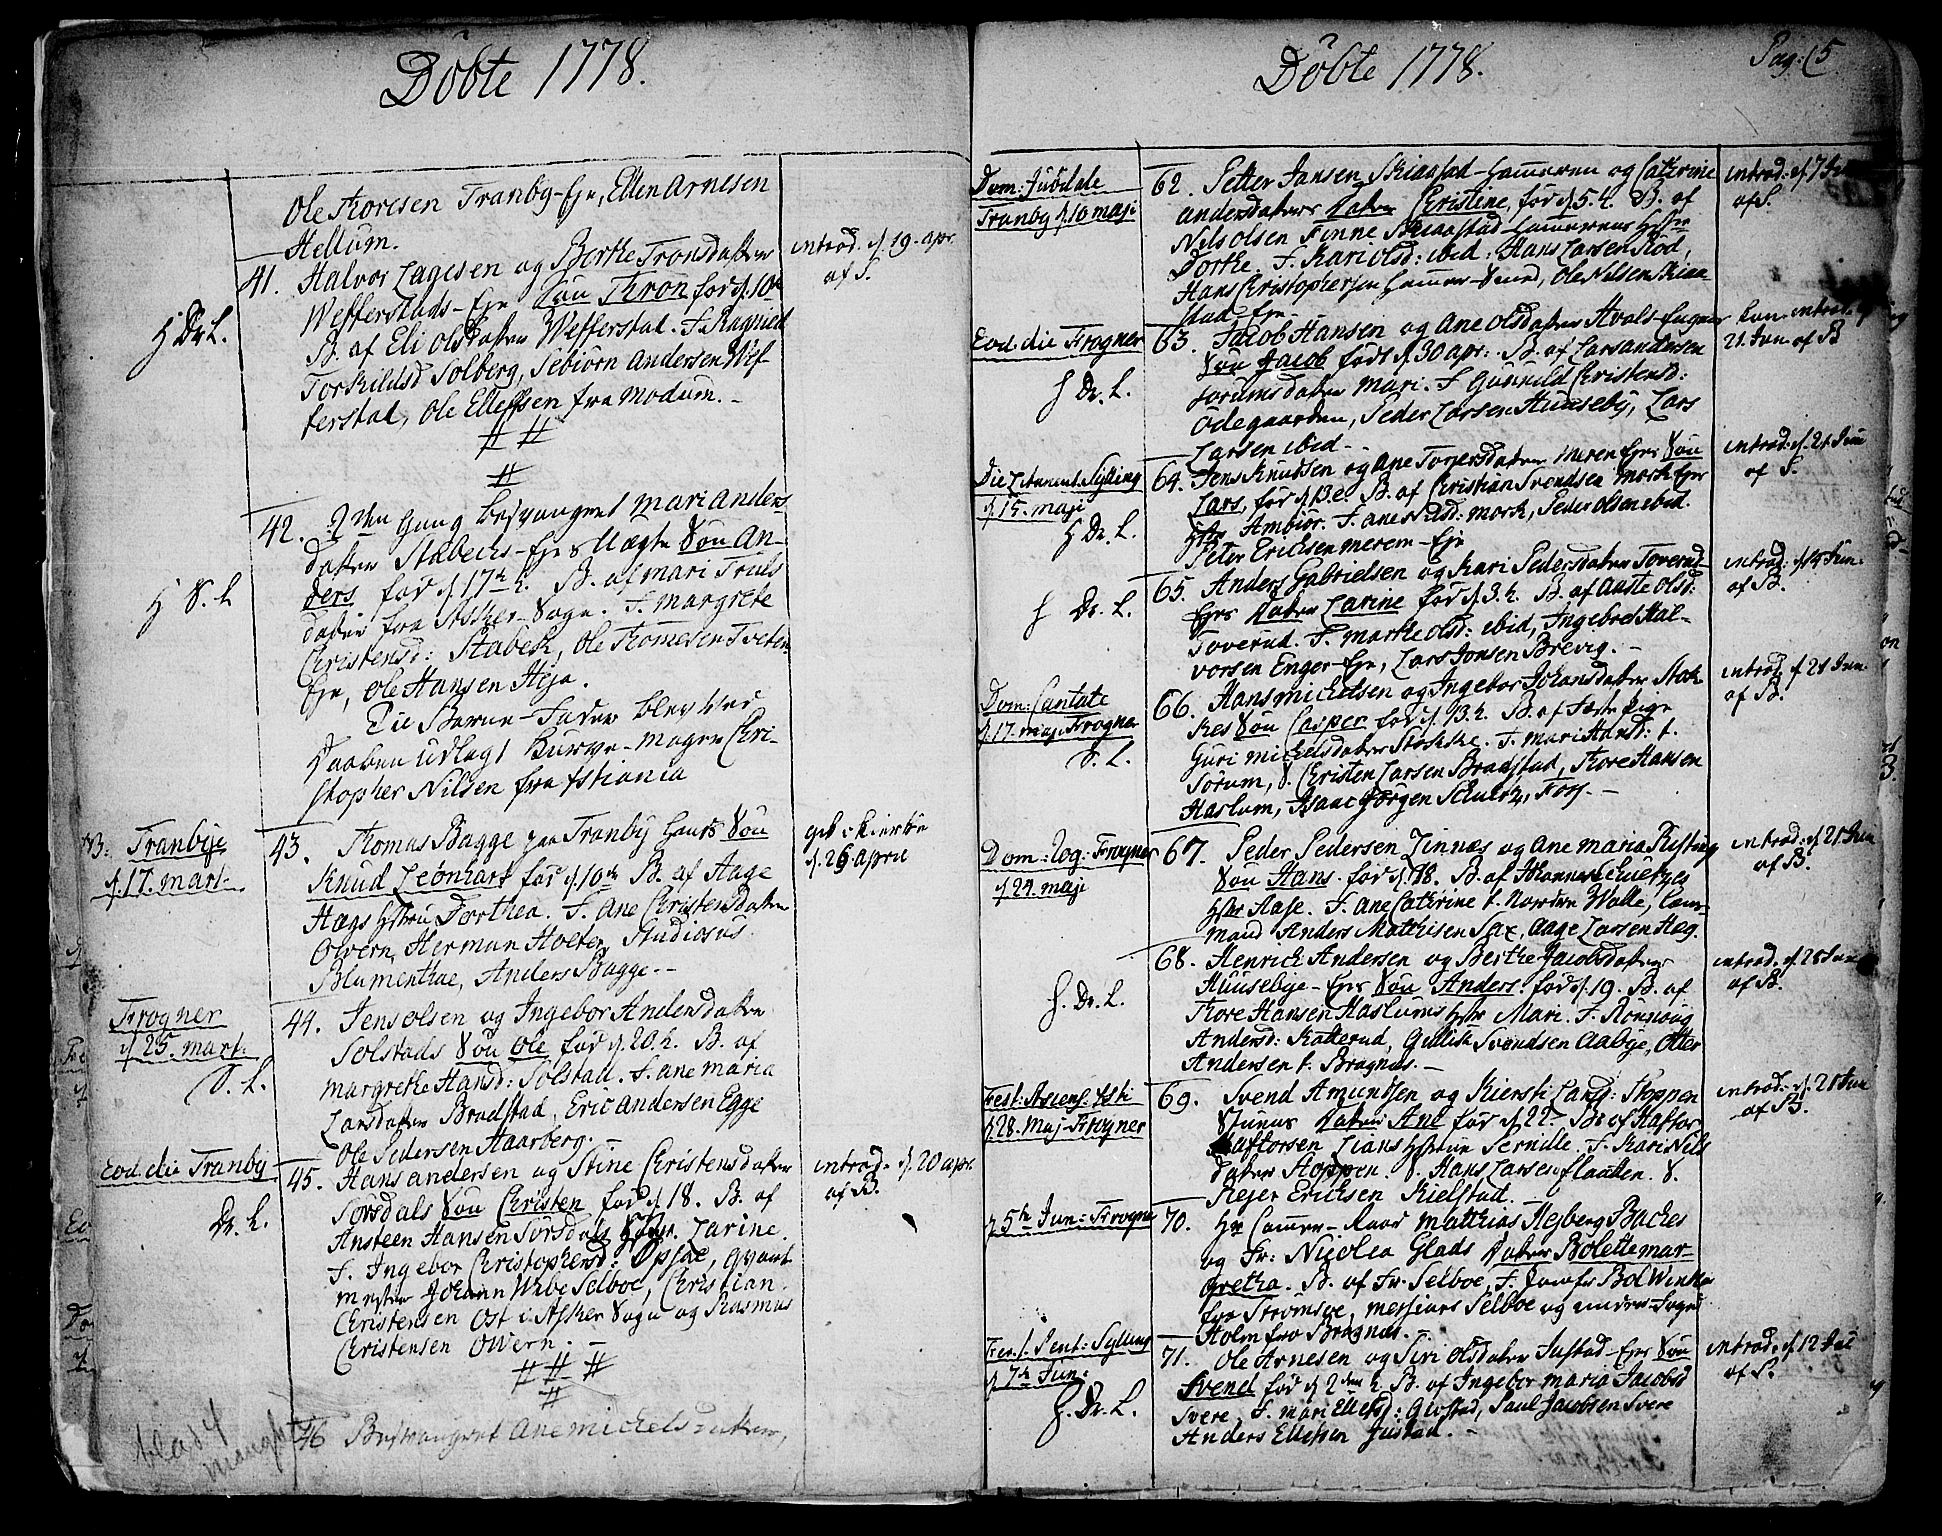 Döbte 1778.
Ole Thoresen Tranby-Eje, Ellen Arnesen
Hellum.
41. Halvor Lagesen og Berthe Tronsdatter
Wefferstads-Eje Sön Thron föd d. 10de
B. af Eli Olsdatter Wefferstad. F. Ragnild
Torkildsd Solberg, Sebiörn Andersen Wef-
ferstad, Ole Ellefsen fra Modum.
introd. d. 19. apr.
af S.
H Dr. L.
42. 2den Gang besvangret Mari Anders-
datter Stabechs-Ejes Uægte Sön An-
ders föd d. 17de h. B. af Mari Truls
datter fra Asker-Sogn. F. Margrethe
Christensd: Stabek, Ole Thomesen Tveten
Eje, Ole Hansen Heja.
Til Barne-Fader blev ved
Daaben udlagt Chri-
stopher Nilsen fra Xstiania
H S. L
NB: Tranbye
d. 17. mart.
43. Thomas Bagge paa Tranby Hans Sön
Knud Leonhart föd d. 10de B. af Aage
Høegs Hstru Dorthea. F. Ane Christensdatter
Owern, Herman Hoften, Studiosus
Blumenthal, Anders Bagge.
d. 26 april
Frogner
d. 25. mart.
S. L.
44. Jens Olsen og Ingebor Andersdatter
Solstads Sön Ole föd d. 20. h. B. af
Margrethe Hansd: Solstad. F. Ane Maria
Larsdatter Bradstad, Eric Andersen Egge
Ole Pedersen Haarberg.
Eod. die Tranby
Dr. L.
45. Hans Andersen og Stine Christensdatter
Torsdals Sön Christen föd d. 18. B. af
Ansteen Hansen Torsdals Hstr. Larine.
F. Ingebor Christophersd: Opsal, Qvart
mester Johann Wibe Selboe, Christian
Christensen Ost i Asker Sogn og Rasmus
Christensen Owern.
introd. d. 20 apr.
af B.
46 Besvangret Ane Michelsdatter,
blad 4
mangler
Döbte 1778.
Pag: 5
Dom: Jubilate
Tranby d. 10 maji
62. Petter Jansen Skiaastad-Hammeren og Cathrine
Andersdatters Datter Christine, föd d. 5. h. B. af
Nils Olsen Finne Skiaastad Hammerens Hstr
Dorthe. F. Kari Olsd: ibid, Hans Larsen Röd,
Hans Christophersen Hammer-Smed, Ole Nilsen Skiaa-
stad Eje.
introd: d. 7 Jun
af S.
Eod. die Frogner
H Dr. L.
63. Jacob Hansen og Ane Olsdatter Hvals-Enger
Sön Jacob födt d. 30 apr: B. af Lars Andersen
Sörumsdatter Mari. F. Gunnild Christensd:
Ödegaarden, Peder Larsen Huuseby, Lars
Larsen ibid
Kon. introd.
21. Jun. af B
Die Sylling
d. 15. maji
H Dr. L.
64. Jens Knudsen og Ane Torersdatter Meren Ejes Sön
Lars, föd d. 13. B. af Christian Svendsen Mork Ejes
Hstr Ambiör. F. Ane Nilsd: Mork, Peder Olsen ibid.
Peter Ericksen Meren-Eje
introd: d. 21 Jun
af S.
H. Dr. L.
65. Anders Gabrielsen og Kari Pedersdatter Toverud-
Ejes Datter Larine föd d. 3. h. B. af Aaste Olsd:
Toverud. F. Marthe Olsd: ibid, Ingebret Hal-
vorsen Enger-Eje, Lars Jonsen Brevig.
introd: d. 14 Jun.
af B.
Dom: Cantate
d. 17. maji Frogner
S. L.
66. Hans Michelsen og Ingebor Johansdatter Stok-
kes Sön Casper föd d. 13. h. B. af Fæste Pige
Guri Michelsdatter Stokke. F. Mari Hansd: t.
Sörum, S. Christen Larsen Bradstad, Thore Hansen
Haslum, Isaac Jörgen Schultz, Foss.
introd. d. 21 Jun.
af B.
Dom: Rog: Frogner
d. 24. maji
67. Peder Pedersen Linnæs og Ane Maria Risting
Sön Hans. föd d. 18. B. af Johannes
Hstr Aase. F. Ane Cathrine t. Nordre Walle, Laur-
mand Anders Mathisen Sax, Aage Larsen Høg.
introd: d. 21. Jun
af B.
H. Dr. L.
68. Henrich Andersen og Berthe Jacobsdatter
Huusebye-Ejes Sön Anders. föd d. 19. B. af
Thore Hansen Haslums Hstr Mari. F. Rönnoug
Andersd: Katterud, Gullik Svendsen Aabye, Otter
Andersen t. Bragnæs.
introd. d. 28 Jun
af B.
Fest: Ascens: Xsti
d. 28. maj Frogner
69. Svend Amundsen og Kiersti Larsd: Stoppen
Stuens Datter Ane föd d. 22. B. af Haftor
Haftorsen Lians Hstrue Pernille. F. Kari Nils
datter Stoppen. S. Hans Larsen Flaaten. S.
Rejer Ericksen Kielstad.
introd: d. 21 Jun
af B.
d. 5te Jun: Frogner
70. Hr Cammer-Raad Matthias Hejberg Baches
og Fr: Nicolea Glads Datter Bolette Mar-
gretha. B. af Fr. Selboe, F. Jomfr Bol Winther
fra Strömsöe, Messieurs Selboe og under-Foged
Holm fra Bragnæs.
Fer. 1. Pent: Sylling
d. 7de Jun:
H. Dr. L.
71. Ole Arnesen og Siri Olsdatter Justad-Ejes Sön
Svend föd d. 2den h. B. af Ingebor Maria Jacobsd
Svere, F. Mari Ellefsd: Gustad, Paul Jacobsen Svere
Anders Ellefsen Justad.
introd: d. 12 Jul
af S.